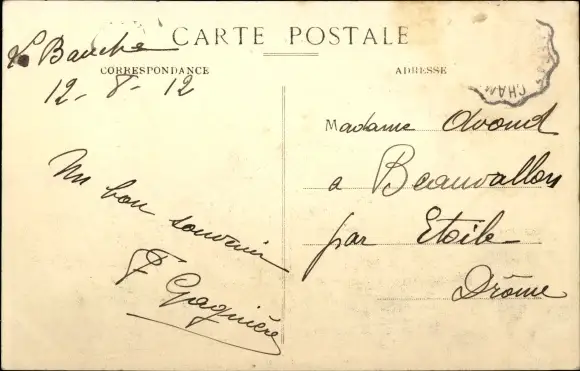 CARTE POSTALE
La Bauche
CORRESPONDANCE
12-8-12
Un bon souvenir
F Gagnière
ADRESSE
CHAM
Madame Avond
a Beauvallon
par Etoile
Drôme